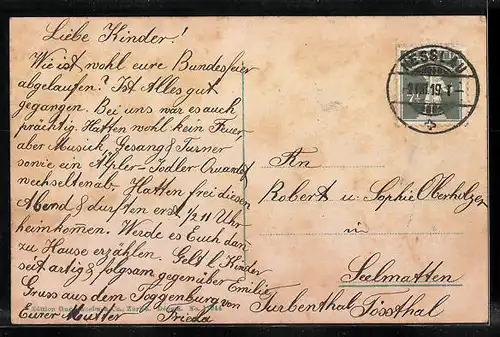 Liebe Kinder!
Wie ist wohl eure Bundesfeier
abgelaufen? Ist Alles gut
gegangen. Bei uns war es auch
prächtig. Hatten wohl kein Feuer,
aber Musick, Gesang & Turner
sowie ein Älpler-Jodler
wechselten ab. Hatten frei diesen
Abend & durften erst ½ 11 Uhr
heimkommen. Werde es Euch dan
zu Hause erzählen. Gelt l. Kinder
seit artig & folgsam gegenüber Emilie
Gruss aus dem Toggenburg von
Eurer Mutter Frieda
NESSLAU
An
Robert u. Sophie Oberholzer
in
Seelmatten
Turbenthal Tössthal